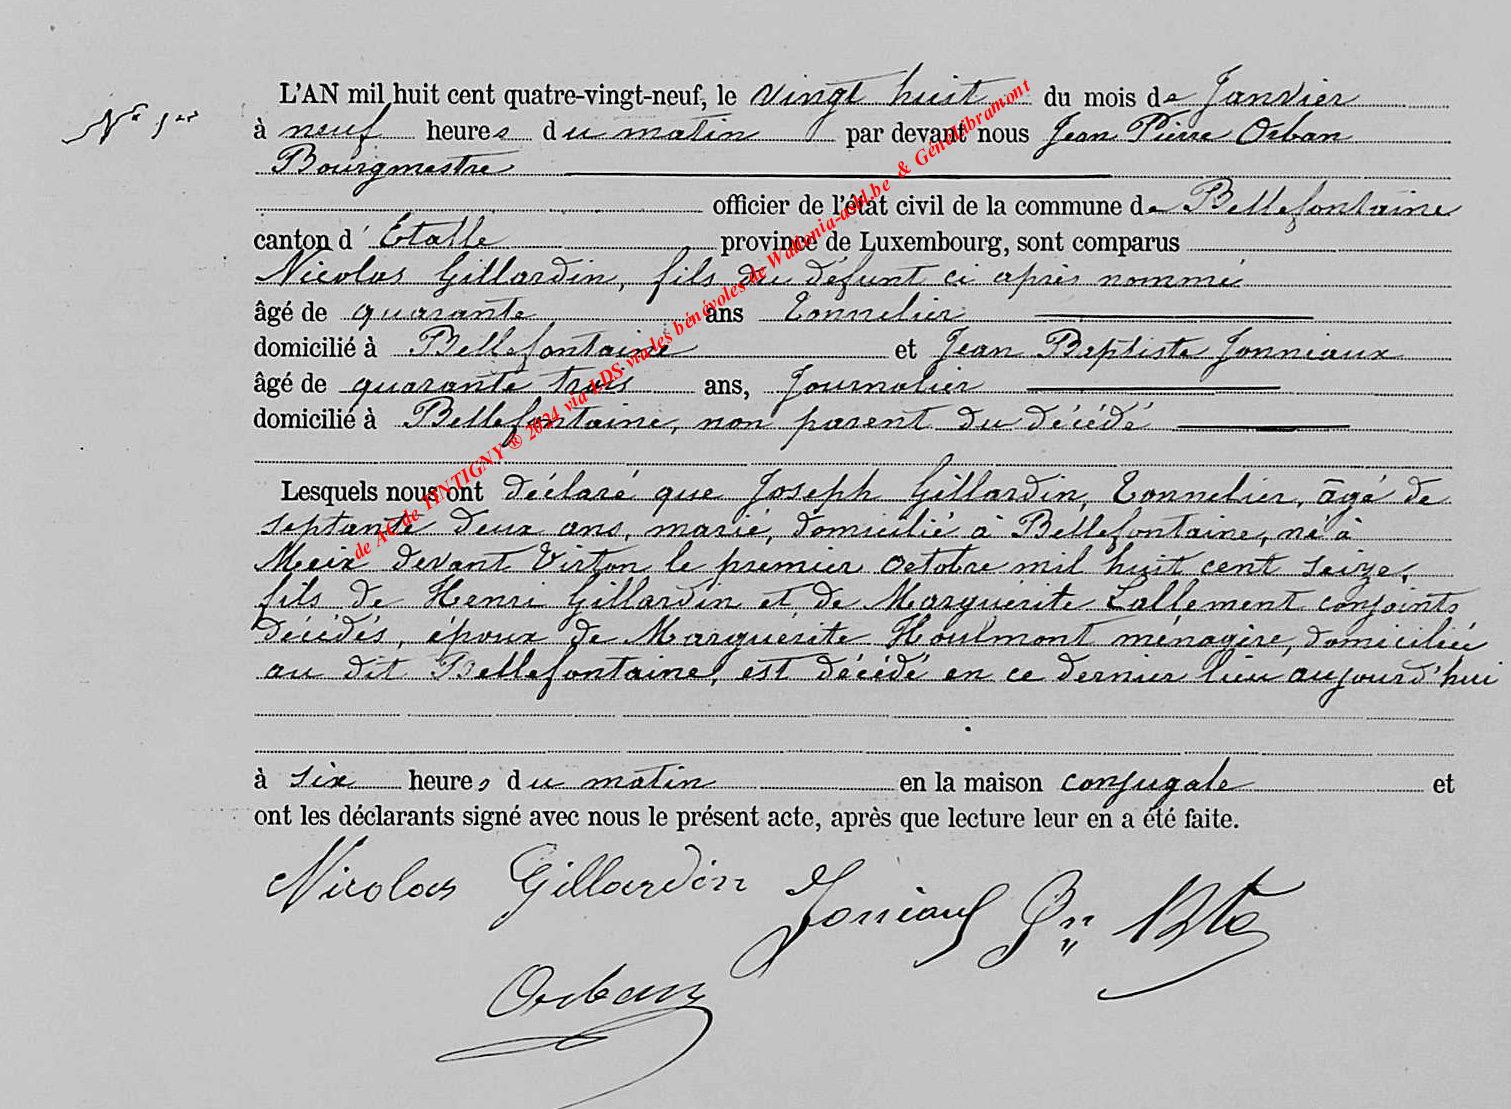 L'AN mil huit cent quatre-vingt-neuf, le vingt huit du mois de Janvier
N° 1er
à neuf heures du matin par devant nous Jean Pierre Orban
Bourgmestre
officier de l'état civil de la commune de Bellefontaine
canton d'Etalle province de Luxembourg, sont comparus
Nicolas Gillardin, fils du défunt ci après nommé
âgé de quarante ans Tonnelier
domicilié à Bellefontaine et Jean Baptiste Jonniaux
âgé de quarante trois ans, Journalier
domicilié à Bellefontaine, non parent du décédé
Lesquels nous ont déclaré que Joseph Gillardin, Tonnelier, âgé de
septante deux ans, marié, domicilié à Bellefontaine, né à
Meix devant Virton le premier octobre mil huit cent seize,
fils de Henri Gillardin et de Marguerite Lallement conjoints
décédés, époux de Marguérite Houlmont ménagère, domiciliée
au dit Bellefontaine, est décédé en ce dernier lieu aujourd'hui
à six heures du matin en la maison conjugale et
ont les déclarants signé avec nous le présent acte, après que lecture leur en a été faite.
Nicolas Gillardin Joniaux Jn Bte
Orban
de AC de TINTIGNY ® 2024 via LDS via les bénévoles de Wallonia-asbl.be & GénéaLibramont